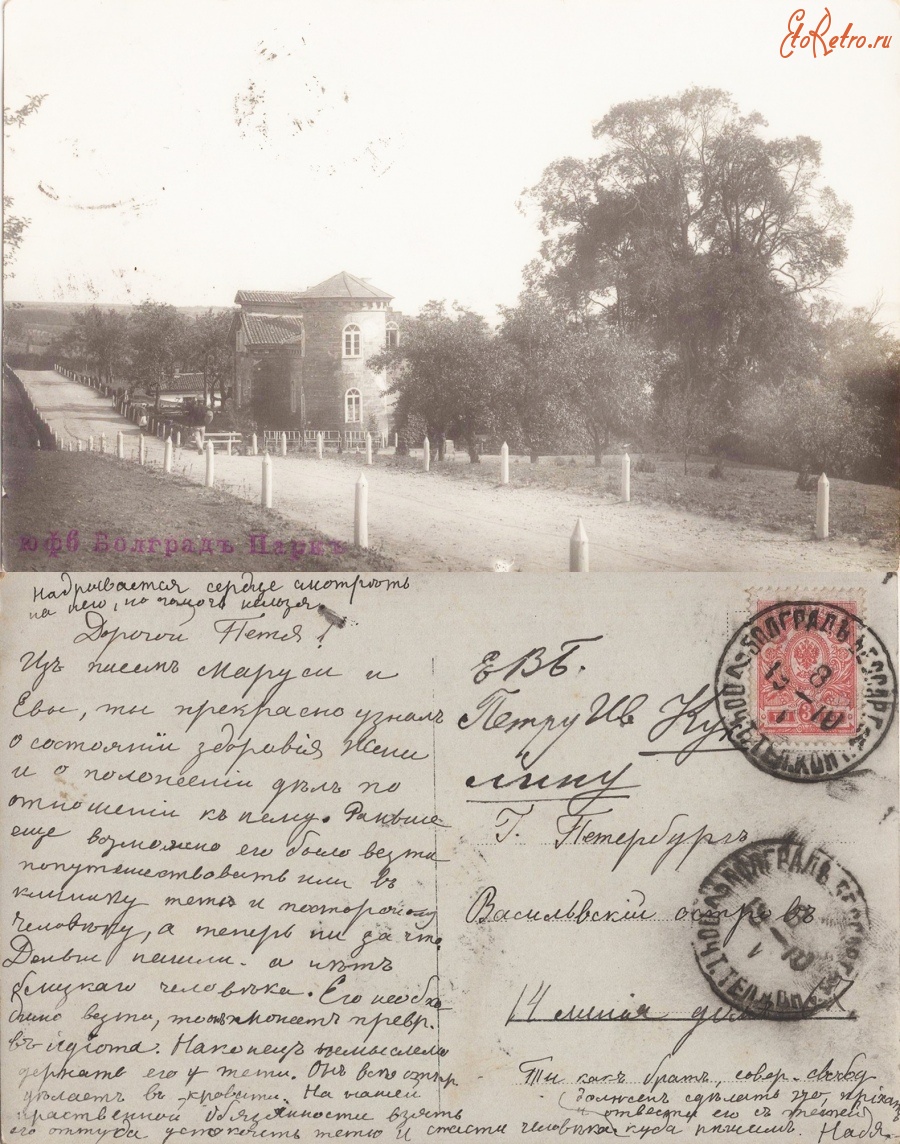 EtoRetro.ru
юфв Болградъ Паркъ
надрывается сердце смотрѣть
на него, но помочь нельзя
Дорогой Петя!
Изъ писемъ Маруси и
Евы, ты прекрасно узналъ
о состоянии здоровія Жени
и о положеніи дѣлъ по
отношеніи къ нему. Раньше
еще возможно его было везти
попутешествовать или въ
клинику тетѣ и постороннему
человѣку, а теперь ни за что.
Деньги нашли. а нѣтъ
близкаго человѣка. Его необхо
димо везти, превр.
въ идіота. Наконецъ немыслемо
держать его у тети. Онъ все
дѣлаетъ въ кровати. На нашей
нравственной обязанности взять
его оттуда успокоить тетю и спасти человѣка, куда пишемъ. Надя.
Е В Б.
Петру Ив Ку
лину
Г. Петербургъ
Васильвскій островъ
14 линія
Ти какъ братъ, совер. свобод
долженъ сдѣлать это, пріѣхать
и отвести его съ тетей
БОЛГРАДЪ БЕССАР.
ПОЧТ.ТЕЛ.КОНТ.
8
10
БОЛГРАДЪ БЕССАР.
ПОЧТ.ТЕЛ.КОНТ.
8
10